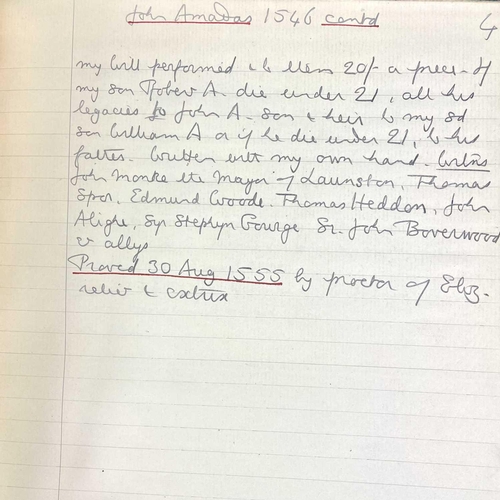 John Amadas 1546 contd
4
my will performed & to them 20/- a piece - If
my son Robert A. die under 21, all his
legacies to John A. son & heir & to my sd
son William A & if he die under 21, to his
father. Written with my own hand. Witns
John Monke the Mayor of Launston, Thomas
Spor, Edmund Woode. Thomas Heddon, John
Alighe, Syr Stephyn Gourge Sr. John Boverwood
& allys
Proved 30 Aug 1555 by proctor of Eliz.
relict & extrix